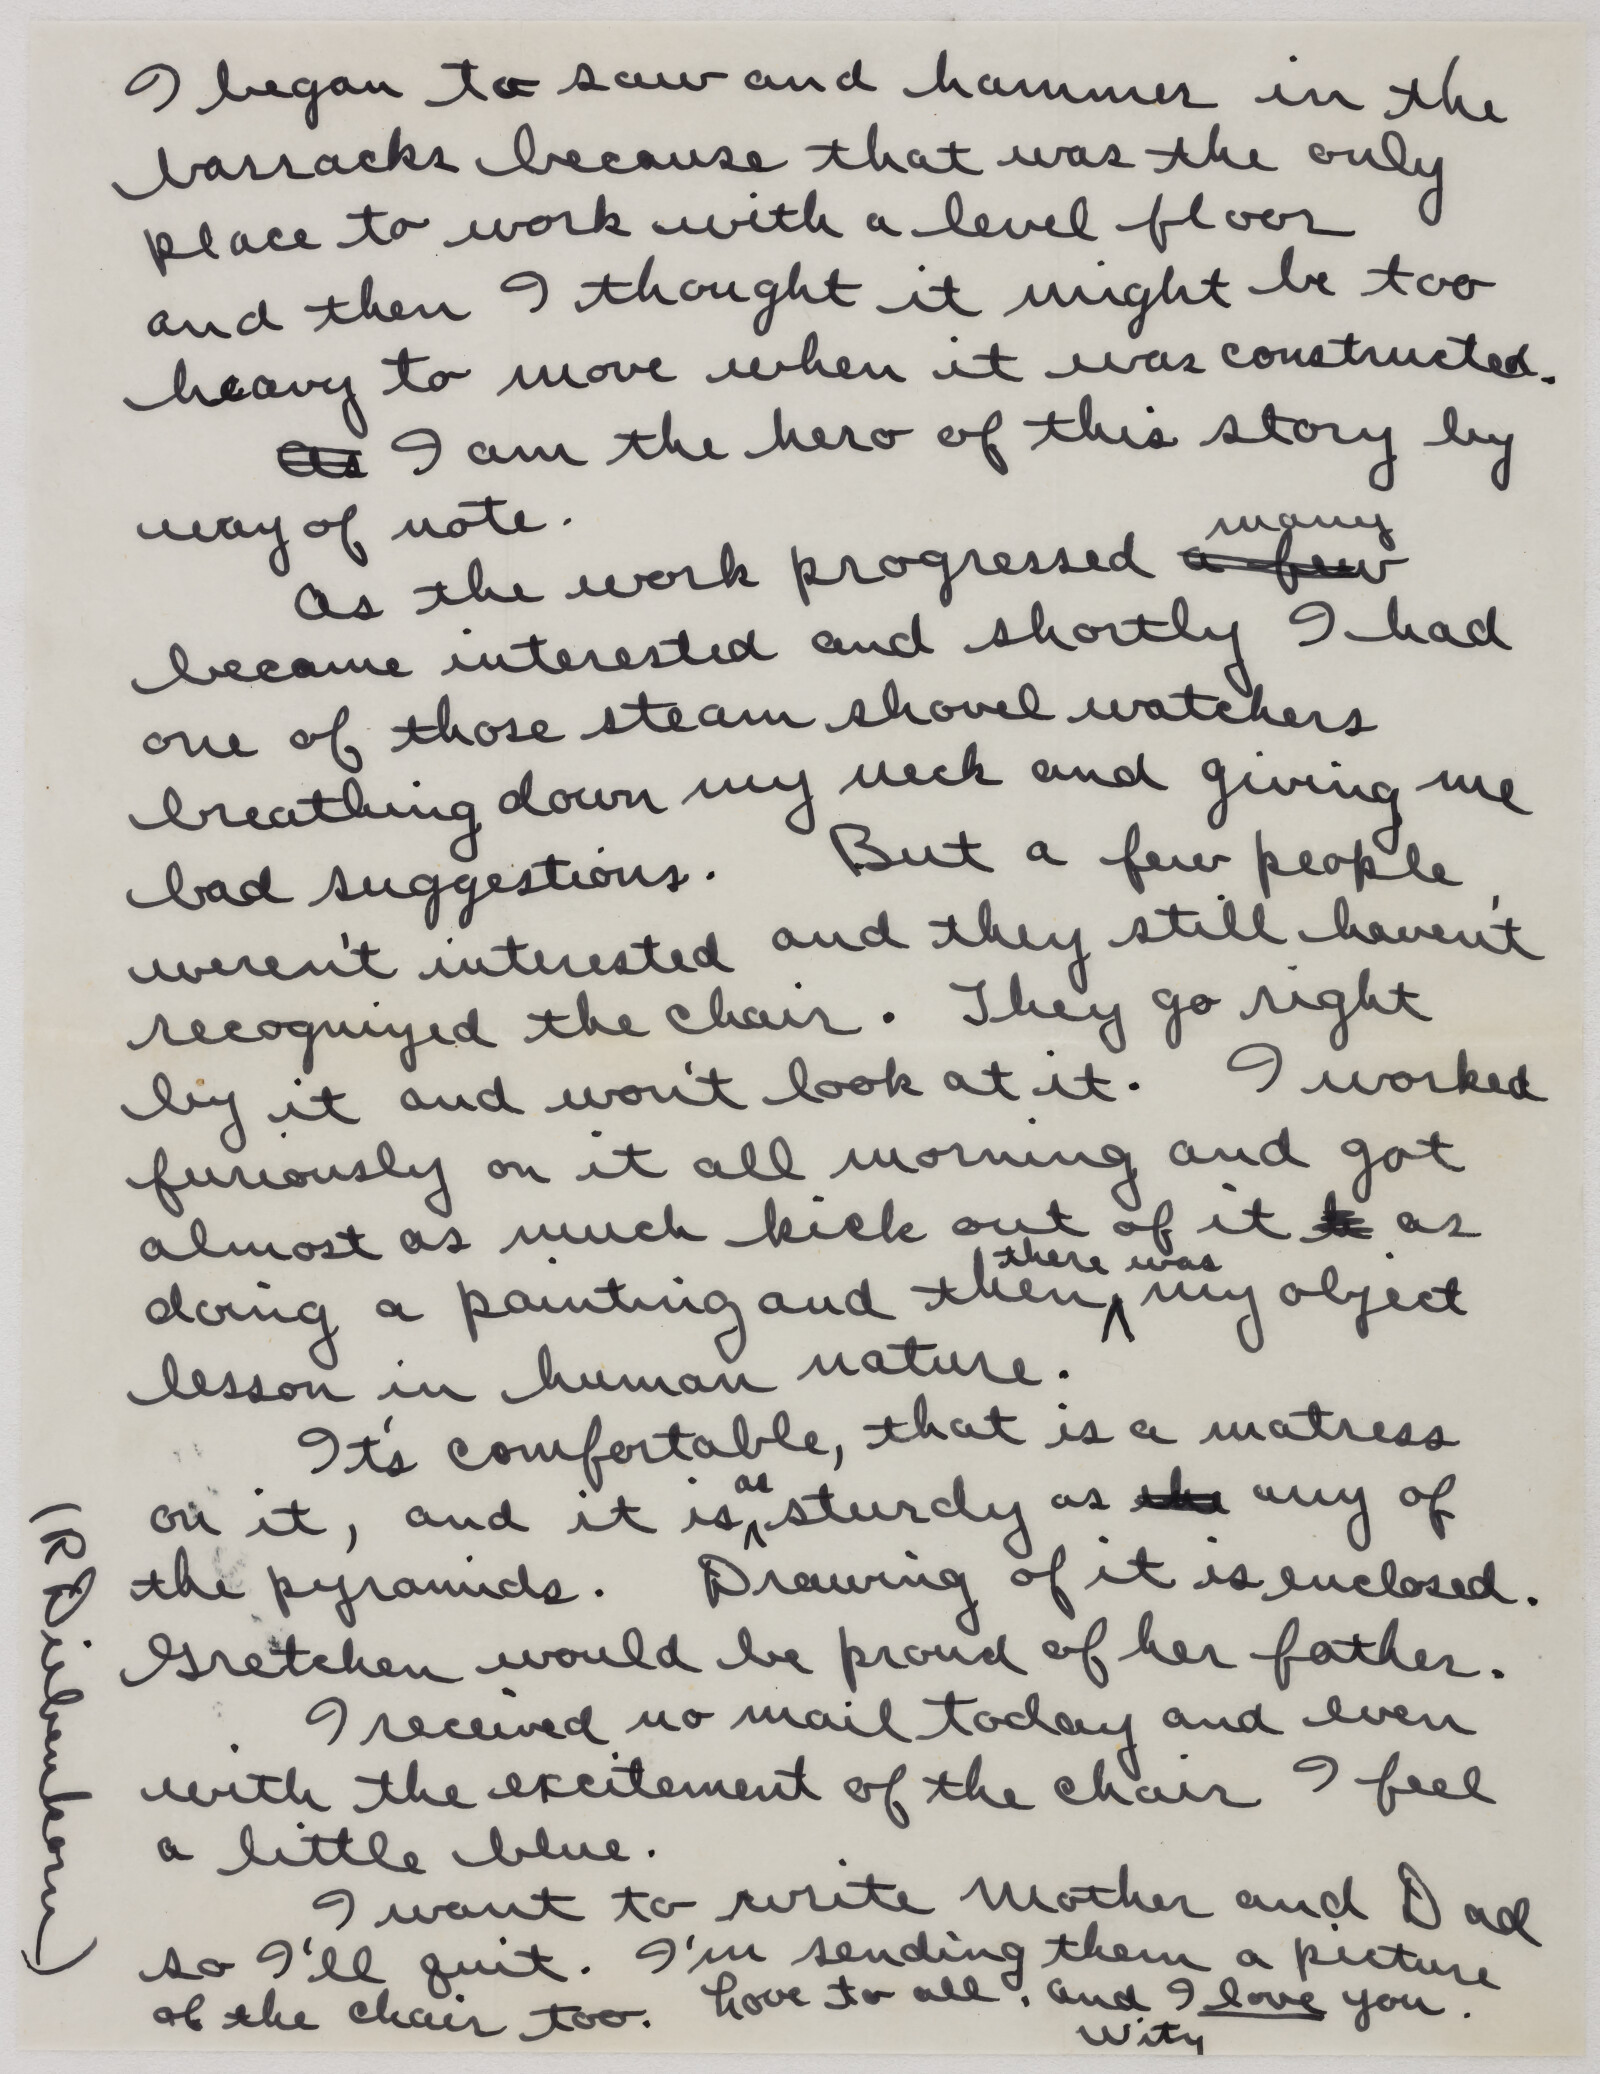 I began to saw and hammer in the
barracks because that was the only
place to work with a level floor
and then I thought it might be too
heavy to move when it was constructed.
As I am the hero of this story by
way of note.
many
As the work progressed a few
became interested and shortly I had
one of those steam shovel watchers
breathing down my neck and giving me
bad suggestions. But a few people
weren't interested and they still haven't
recognized the chair. They go right
by it and won't look at it. I worked
furiously on it all morning and got
almost as much kick out of it as
there was
doing a painting and then ^ my object
lesson in human nature.
It's comfortable, that is a matress
as
on it, and it is ^ sturdy as the any of
the pyramids. Drawing of it is enclosed.
Gretchen would be proud of her father.
I received no mail today and even
with the excitement of the chair I feel
a little blue.
I want to write Mother and Dad
so I'll quit. I'm sending them a picture
of the chair too. Love to all, and I love you.
(R Diebenkorn)